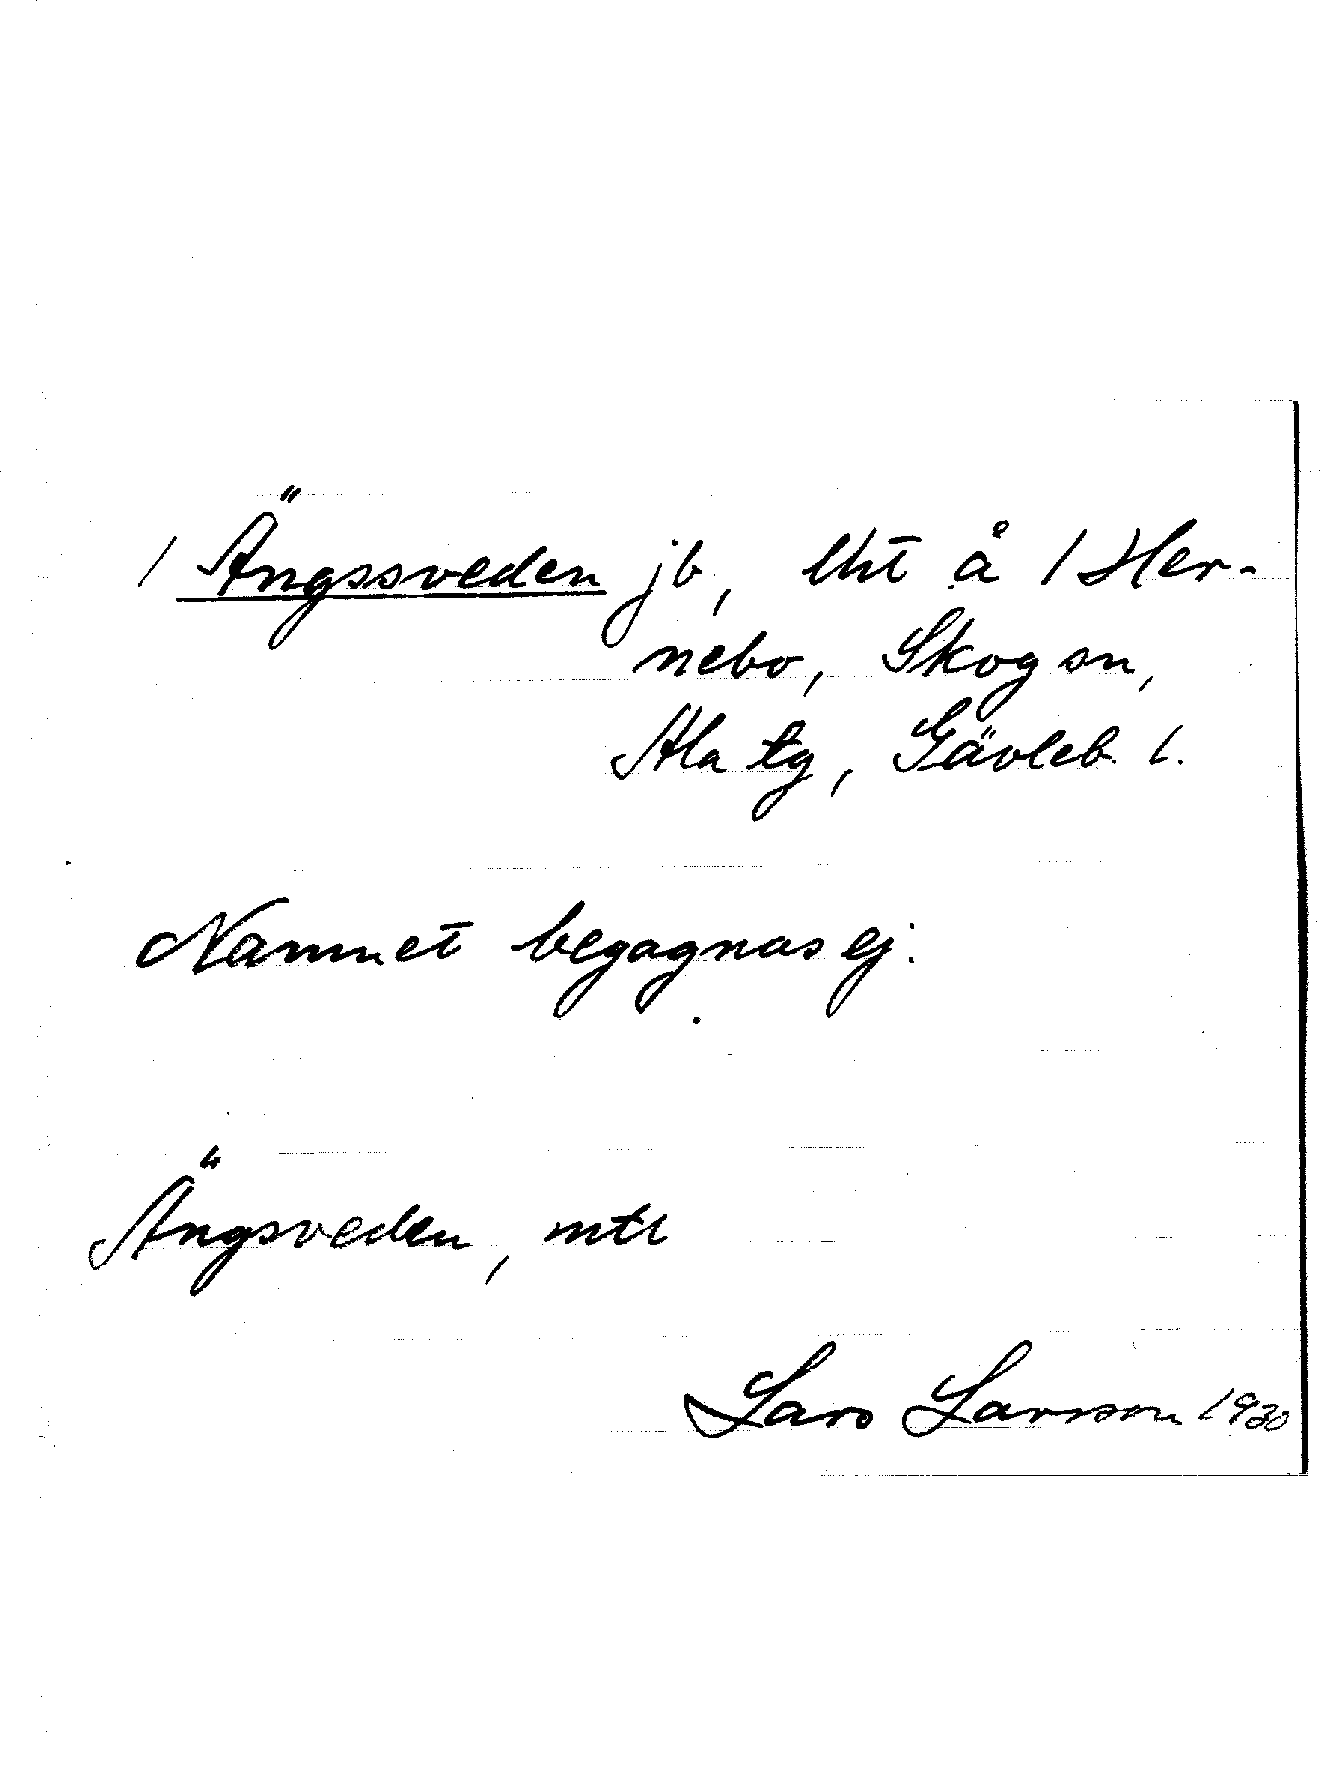 / Ängssveden jb, lht å / Her-
nebo, Skog sn,
Ala tg, Gävleb. l.
Namnet begagnas ej.
Ängsveden, mtl
Lars Larsson 1930